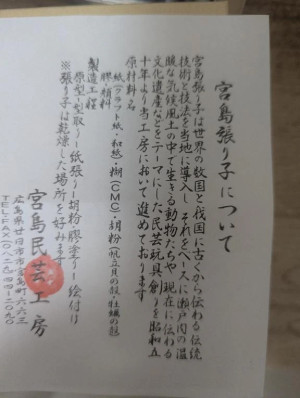 宮島張り子について
宮島張り子は世界の数国と我国に古くから伝わる伝統
技術と技法を当地に導入し それをベースに瀬戸内の温
順な気候風土の中で生きる動物たちや 現在に伝わる
文化遺産などをテーマにした民芸玩具創りを昭和五
十年より当工房において進めております
原材料名
紙(クラフト紙・和紙)・糊(CMC)・胡粉(帆立貝の殻・牡蠣の殻)
膠・顔料
製造工程
原型ー型取りー紙張りー胡粉膠塗りー絵付け
※張り子は乾燥した場所を好みます
宮島民芸工房
広島県廿日市市宮島町六六三
TEL・FAX(〇八二九)四四ー二〇九〇